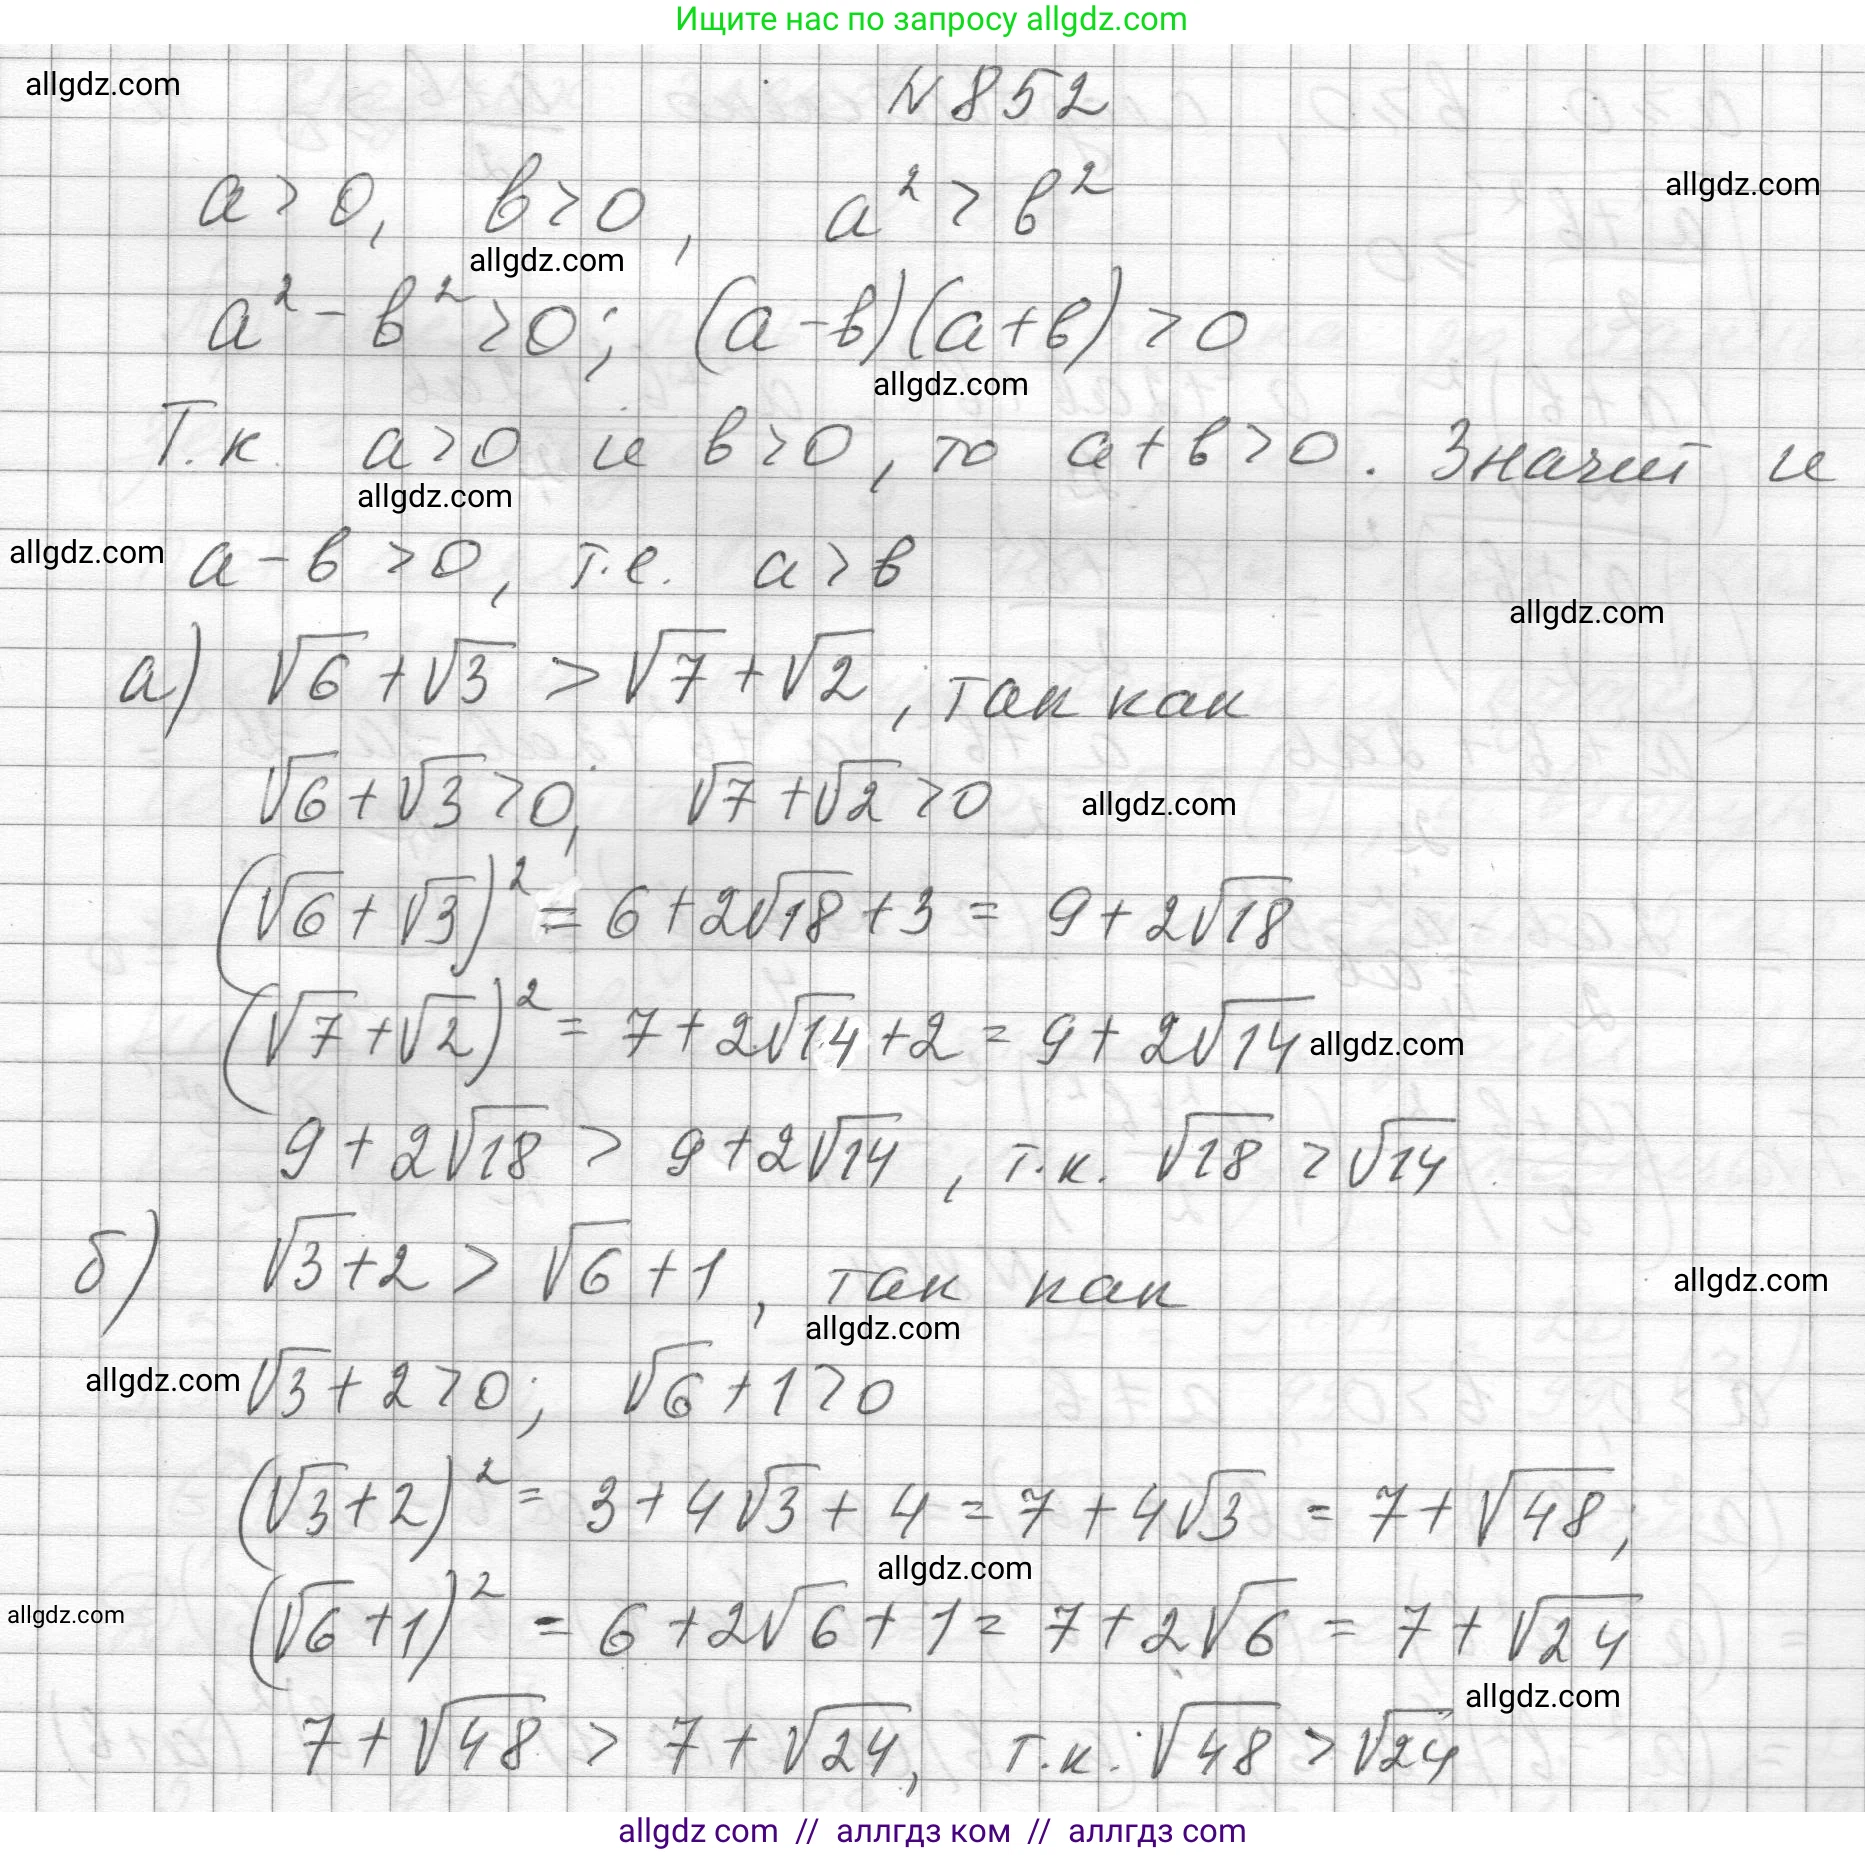 Ищите нас по запросу allgdz.com
allgdz.com
N 852
allgdz.com
a > 0, в > 0, a² > в²
allgdz.com
a² - в² > 0; (a - в)(a + в) > 0
allgdz.com
Т.к. a > 0 и в > 0, то a + в > 0. Значит и
allgdz.com
allgdz.com
a - в > 0, т.е. a > в
allgdz.com
а) √6 + √3 > √7 + √2, так как
√6 + √3 > 0; √7 + √2 > 0
allgdz.com
(√6 + √3)² = 6 + 2√18 + 3 = 9 + 2√18
(√7 + √2)² = 7 + 2√14 + 2 = 9 + 2√14
allgdz.com
9 + 2√18 > 9 + 2√14, т.к. √18 > √14
б) √3 + 2 > √6 + 1, так как
allgdz.com
allgdz.com
allgdz.com
√3 + 2 > 0; √6 + 1 > 0
(√3 + 2)² = 3 + 4√3 + 4 = 7 + 4√3 = 7 + √48;
allgdz.com
allgdz.com
(√6 + 1)² = 6 + 2√6 + 1 = 7 + 2√6 = 7 + √24
allgdz.com
7 + √48 > 7 + √24, т.к. √48 > √24
allgdz com // аллгдз ком // аллгдз com